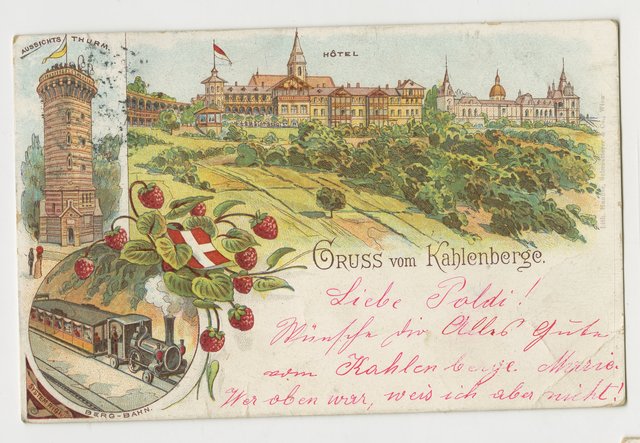 AUSSICHTS THURM.
HÔTEL
GRUSS vom Kahlenberge.
Liebe Poldi!
Wünsche dir Alles Gute
vom Kahlenberge. Marie.
Wer oben war, weis ich aber nicht!
BERG-BAHN.